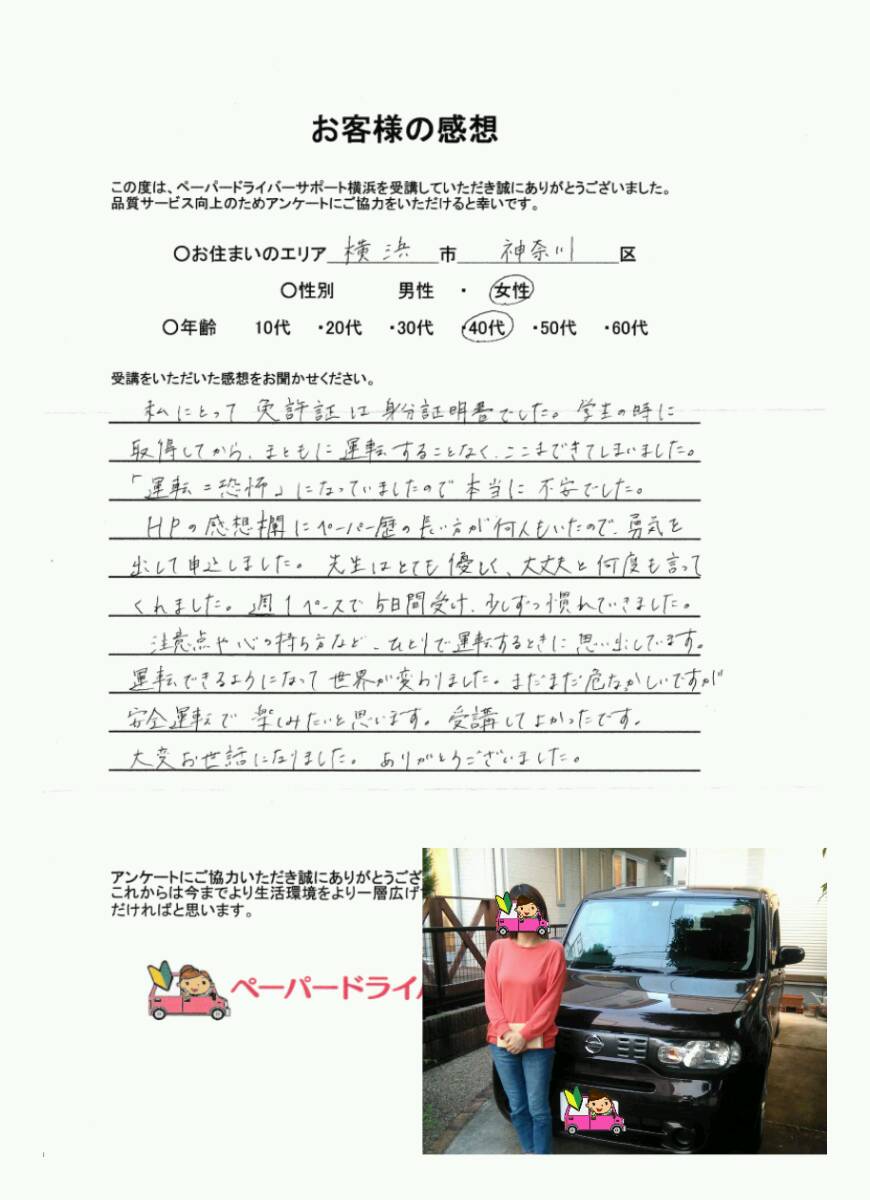 お客様の感想
この度は、ペーパードライバーサポート横浜を受講していただき誠にありがとうございました。
品質サービス向上のためアンケートにご協力をいただけると幸いです。
〇お住まいのエリア 横浜 市 神奈川 区
〇性別 男性 ・ 女性
〇年齢 10代 ・20代 ・30代 ・40代 ・50代 ・60代
受講をいただいた感想をお聞かせください。
私にとって免許証は身分証明書でした。学生の時に
取得してから、まともに運転することなく、ここまできてしまいました。
「運転=恐怖」になっていましたので本当に不安でした。
HPの感想欄にペーパー歴の長い方が何人もいたので、勇気を
出して申込しました。先生はとても優しく、大丈夫と何度も言って
くれました。週1ペースで5日間受け、少しずつ慣れていきました。
注意点や心の持ち方など、ひとりで運転するときに思い出しています。
運転できるようになって世界が変わりました。まだまだ危なっかしいですが
安全運転で楽しみたいと思います。受講してよかったです。
大変お世話になりました。ありがとうございました。
アンケートにご協力いただき誠にありがとうござ
これからは今までより生活環境をより一層広げ
だければと思います。
ペーパードライバ